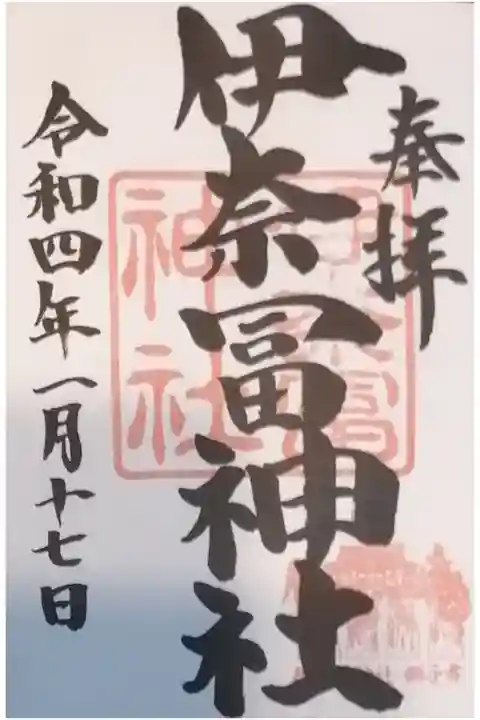 奉拝
伊奈冨神社
伊奈冨
神社
令和四年一月十七日